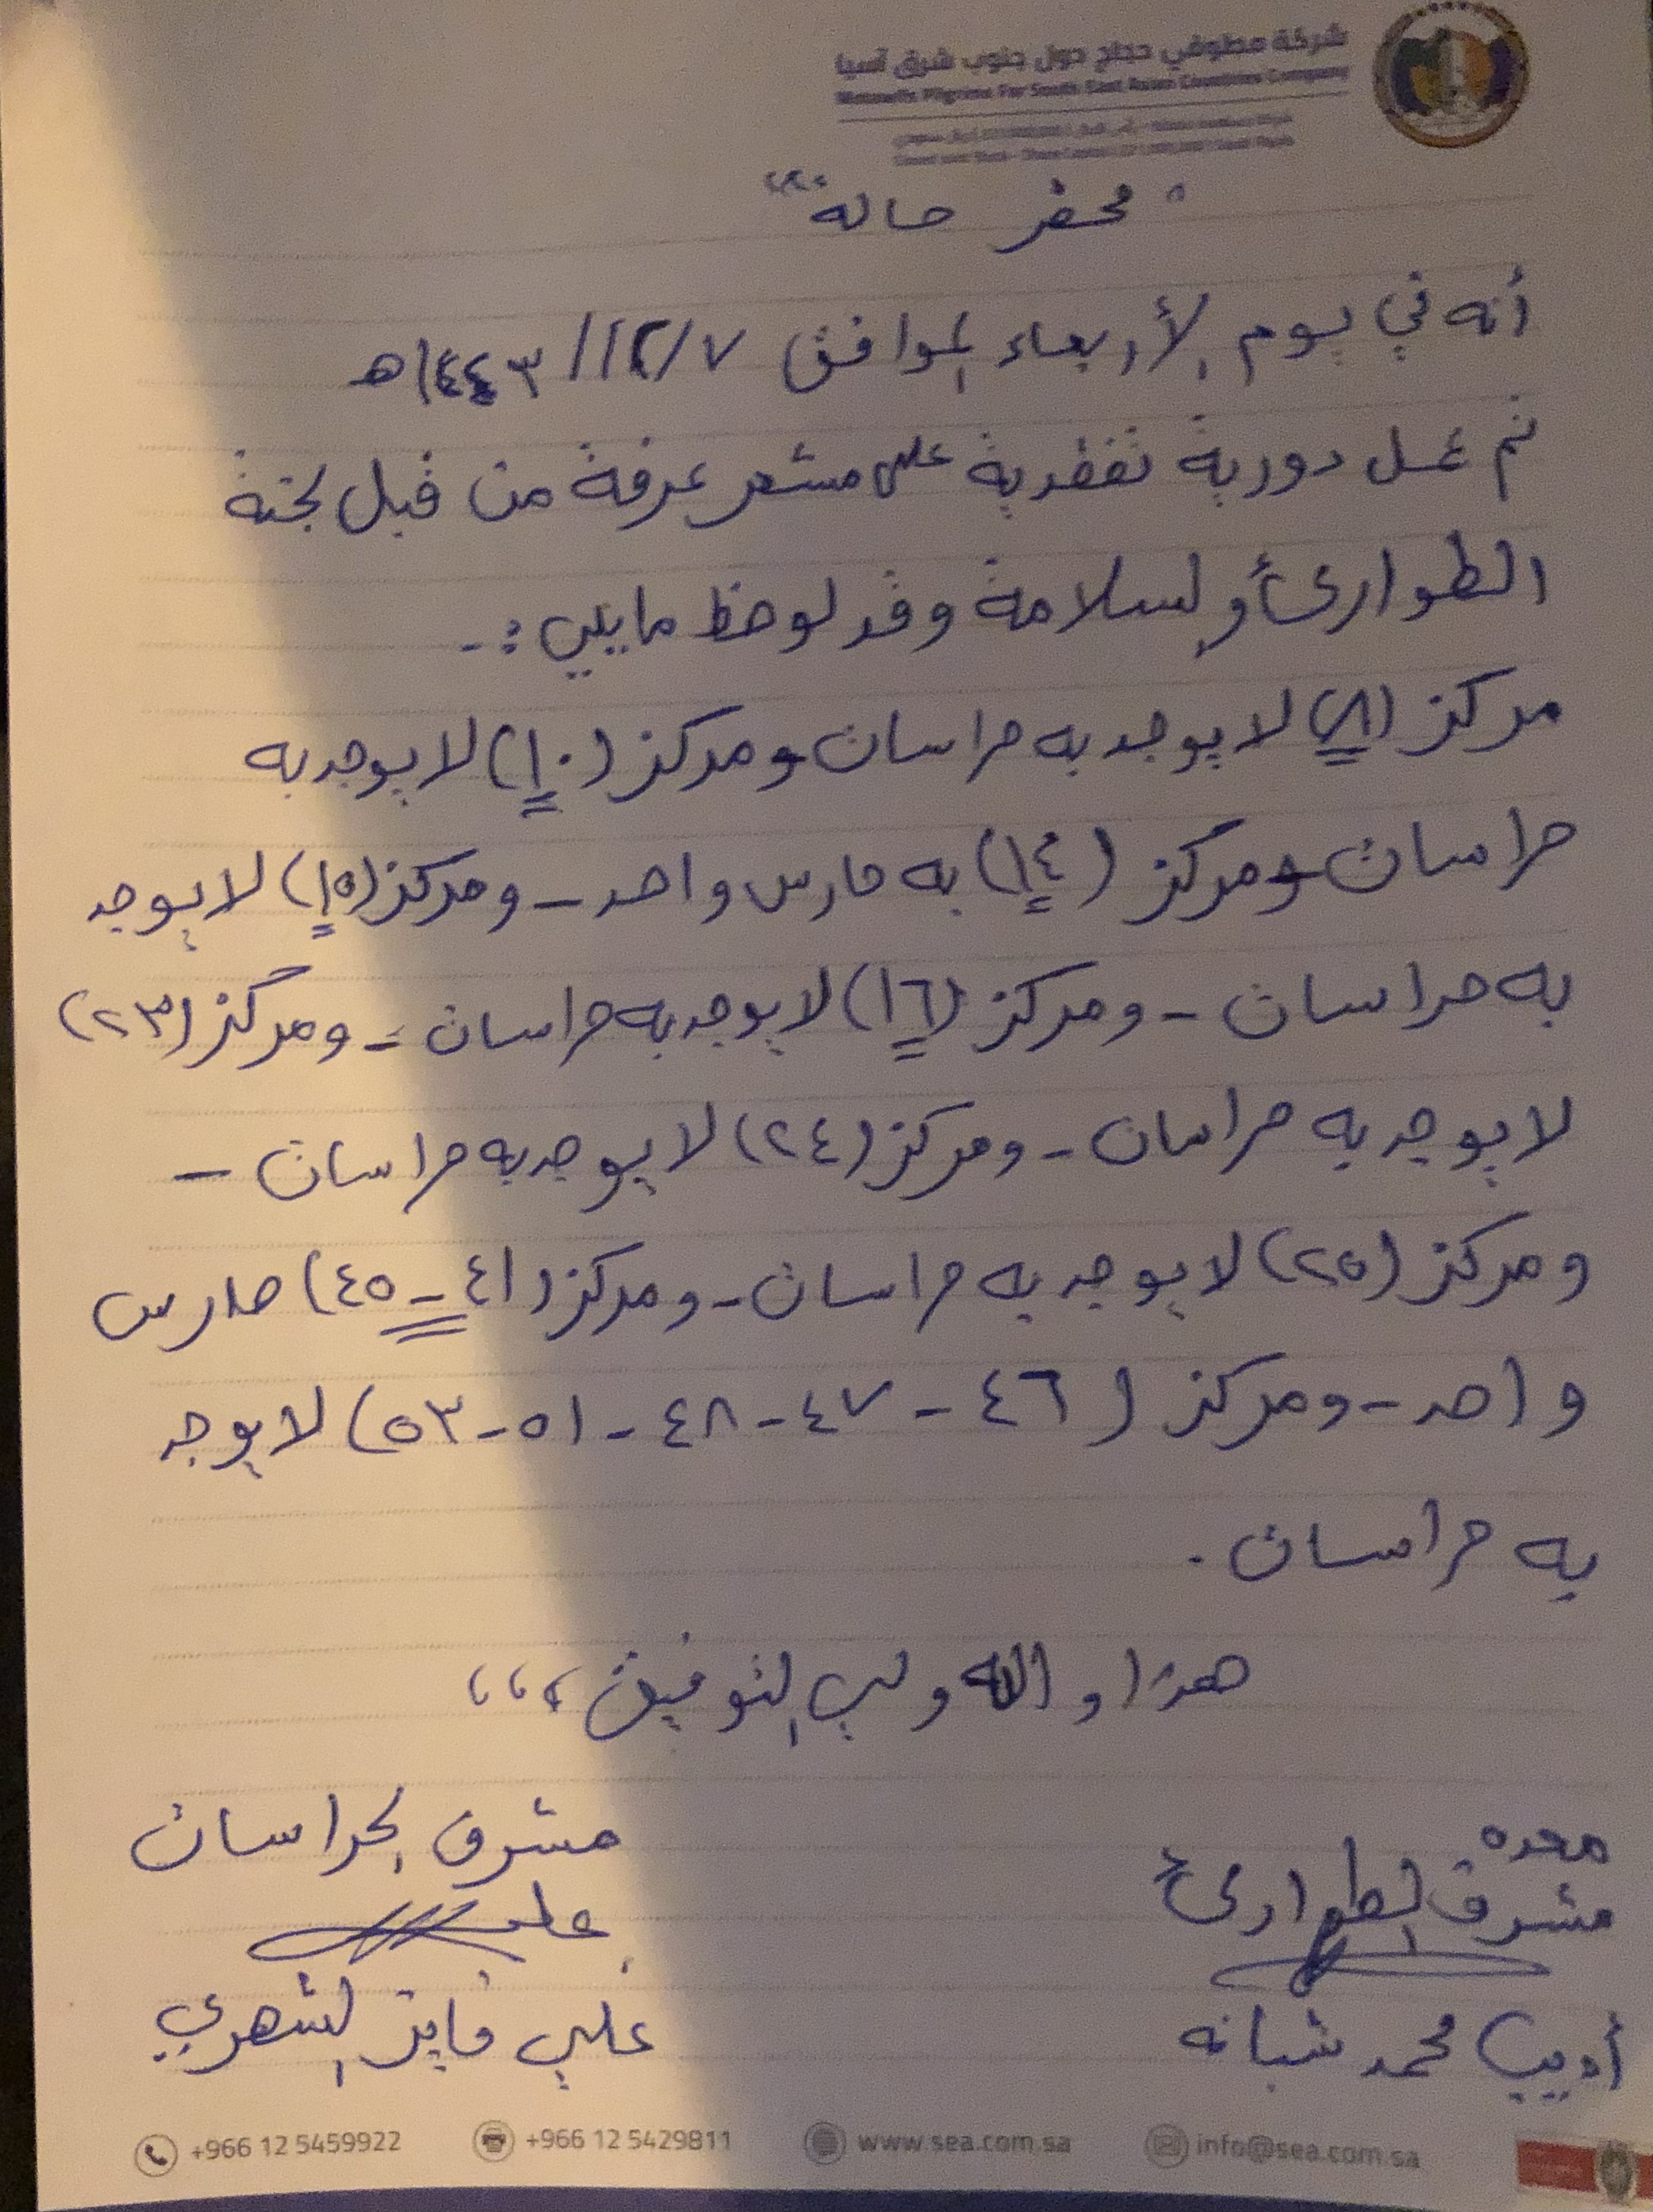 شركة مطوفي حجاج دول جنوب شرق آسيا
Motawifs Pilgrims For South East Asian Countries Company
" محضر حالة "
أنه في يوم الأربعاء الموافق ١٢/٧/ ١٤٤٣هـ
تم عمل دورية تفقدية على مشعر عرفة من قبل لجنة
الطوارئ والسلامة وقد لوحظ مايلي :-
مركز (٨) لا يوجد به حراسات ومركز (١٠) لا يوجد به
حراسات ومركز (١٤) به حارس واحد - ومركز (١٥) لا يوجد
به حراسات - ومركز (١٦) لا يوجد به حراسات - ومركز (٢٣)
لا يوجد به حراسات - ومركز (٢٤) لا يوجد به حراسات -
ومركز (٢٥) لا يوجد به حراسات - ومركز (٤١ - ٤٥) حارس
واحد - ومركز (٤٦ - ٤٧ - ٤٨ - ٥١ - ٥٣) لا يوجد
به حراسات .
هذا والله ولي التوفيق ،،،
معده
مشرف الطوارئ
أديب محمد شبانه
مشرف الحراسات
علي
علي فايز الشهري
+966 12 5459922 +966 12 5429811 www.sea.com.sa info@sea.com.sa